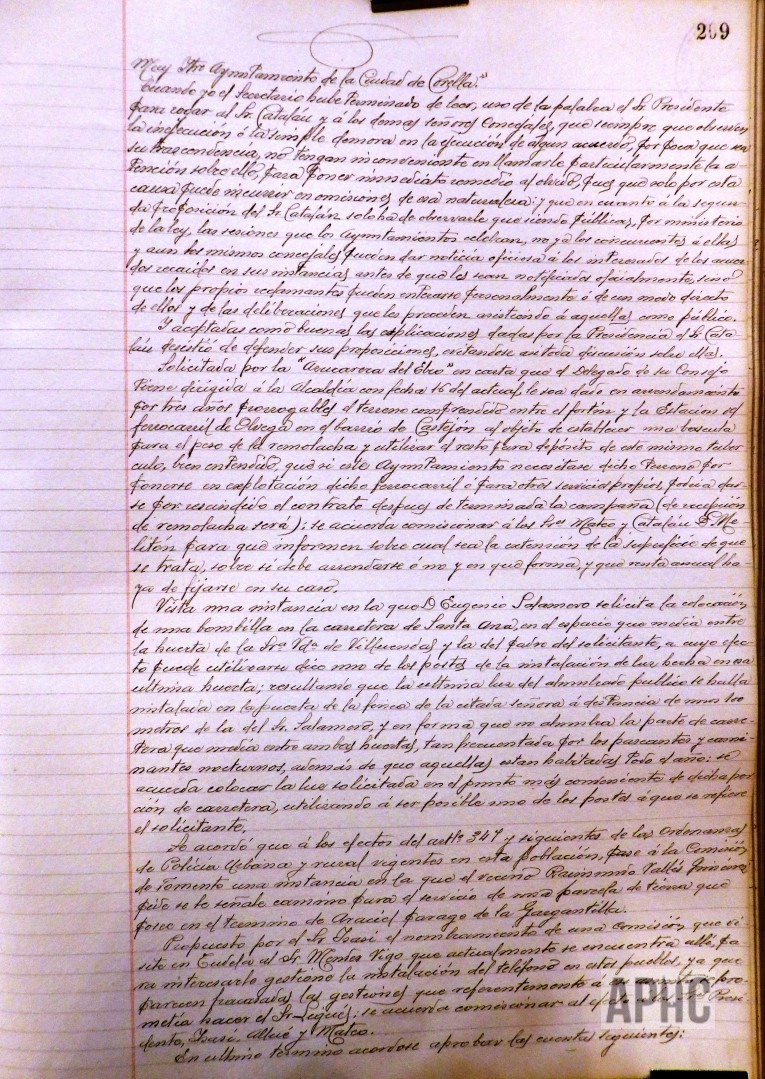 209
Muy Iltre Ayuntamiento de la Ciudad de Corella."
Cuando yo el Secretario hube terminado de leer, uso de la palabra el Sr. Presidente
para rogar al Sr. Catalán y á los demas señores Concejales, que siempre que observen
la inejecucion ó la simple demora en la ejecución de algun acuerdo, por poca que sea
su trascendencia, no tengan inconveniente en llamarle particularmente la a-
tención sobre ello, para poner inmediato remedio al olvido, pues que solo por esta
causa puede incurrir en omisiones de esa naturaleza: y que en cuanto á la segun-
da proposicion del Sr. Catalán solo ha de observarle que siendo públicas, por ministerio
de la ley, las sesiones que los Ayuntamientos celebran, no ya los concurrentes á ellas
y aun los mismos concejales pueden dar noticia oficiosa á los interesados de los acuer-
dos recaidos en sus instancias antes de que les sean notificados oficialmente, sino
que los propios reclamantes pueden enterarse personalmente ó de un modo directo
de ellos y de las deliberaciones que les preceden asistiendo á aquellas como público.
Y aceptadas como buenas las explicaciones dadas por la Presidencia el Sr. Cata-
lán desistió de defender sus proposiciones, evitandose asi toda discusion sobre ellas.
Solicitada por la "Azucarera del Ebro" en carta que el Delegado de su Consejo
tiene dirigida á la Alcaldía con fecha 16 del actual, le sea dado en arrendamiento
por tres años prorrogables el terreno comprendido entre el fortín y la Estacion del
ferrocarril de Olvega en el barrio de Castejón al objeto de establecer una bascula
para el peso de la remolacha y utilizar el resto para depósito de ese mismo tubér-
culo, bien entendido, que si este Ayuntamiento necesitase dicho terreno por
ponerse en explotación dicho ferrocarril ó para otros servicios propios, podría dar-
se por rescindido el contrato despues de terminada la campaña (de recepción
de remolacha será); se acuerda comisionar á los Sres Mateo y Catalán D. Me-
litón para que informen sobre cual sea la extensión de la superficie de que
se trata, sobre si debe arrendarse ó no y en que forma, y que renta anual ha-
ya de fijarse en su caso.
Vista una instancia en la que D. Eugenio Salamero solicita la colocación
de una bombilla en la carretera de Santa Ana, en el espacio que media entre
la huerta de la Sra. Vda. de Villuendas y la del padre del solicitante, a cuyo efec-
to puede utilizarse dice uno de los postes de la instalación de luz hecha en esa
ultima huerta; resultando que la ultima luz del alumbrado publico se halla
instalada en la puerta de la finca de la citada señora á distancia de unos 100
metros de la del Sr. Salamero, y en forma que no alumbra la parte de carre-
tera que media entre ambas huertas, tan frecuentada por los paseantes y cami-
nantes nocturnos, además de que aquellas estan habitadas todo el año; se
acuerda colocar la luz solicitada en el punto más conveniente de dicha por-
ción de carretera, utilizando á ser posible uno de los postes á que se refiere
el solicitante.
Se acordó que á los efectos del artº. 347 y siguientes de las Ordenanzas
de Policia Urbana y rural vigentes en esta población, pase á la Comisión
de Fomento una instancia en la que el vecino Raimundo Vallés Jiménez
pide se le señale camino para el servicio de una parcela de tierra que
posee en el termino de Araciel parage de la Gargantilla.
Propuesto por el Sr. Isasi el nombramiento de una comisión que vi-
site en Tudela al Sr. Mendez Vigo que actualmente se encuentra allí, pa-
ra interesarle gestione la instalación del telefono en estos pueblos, ya que
parecen fracasadas las gestiones que referentemente á pro-
metía hacer el Sr. ; se acuerda comisionar al efecto Presi-
dente, Isasi, Allué y Mateo.
En ultimo termino acordose aprobar las cuentas siguientes:
APHC